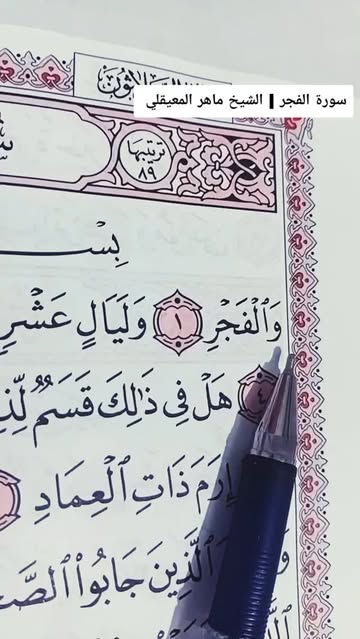 سورة الفجر | الشيخ ماهر المعيقلي
ترتيبها
٨٩
بِسْ
وَٱلْفَجْرِ ١ وَلَيَالٍ عَشْرٍ
٤ هَلْ فِي ذَٰلِكَ قَسَمٌ لِّذِ
إِرَمَ ذَاتِ ٱلْعِمَادِ
ٱلَّذِينَ جَابُوا۟ ٱلصَّ